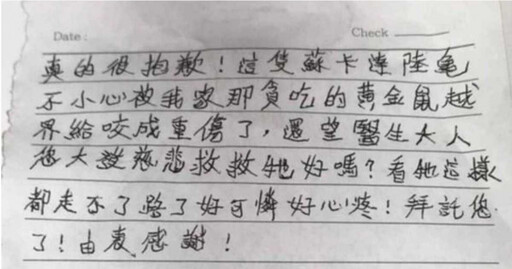 Date: Check
真的很抱歉！這隻蘇卡達陸龜
不小心被我家那貪吃的黃金鼠越
界給咬成重傷了，還望醫生大人
您大發慈悲救救牠好嗎？看牠這樣
都走不了路了好可憐好心疼！拜託您
了！由衷感謝！